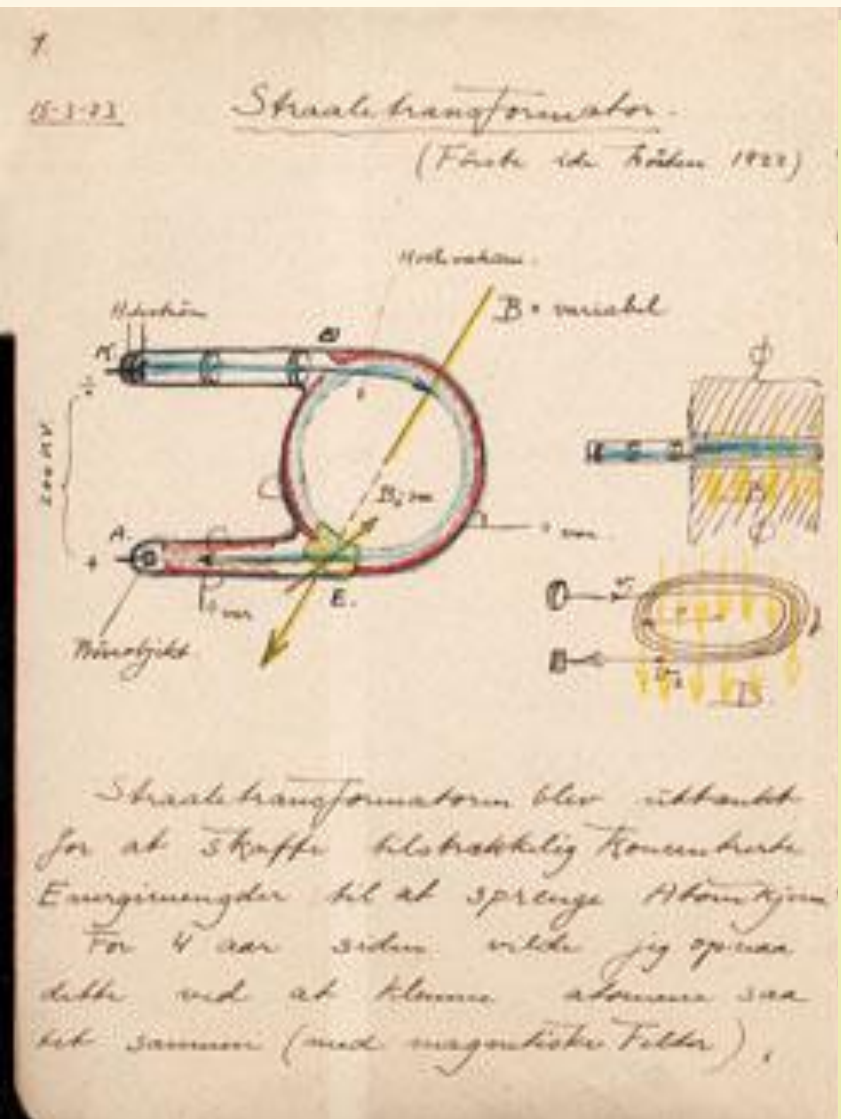 1.
15-3-23
Straaletransformator.
(Förste ide hösten 1922)
Höchvakuum.
B = variabel
K.
÷
200 KV
A.
+
E.
var.
var
Φ
B
Φ
B
Straaletransformatoren blev uttænkt
for at skaffe tilstrækkelig Koncentrerte
Energimengder til at sprenge Atomkjern
For 4 aar siden vilde jeg opnaa
dette ved at klemme atomene saa
tet sammen (med magnetiske Felter),